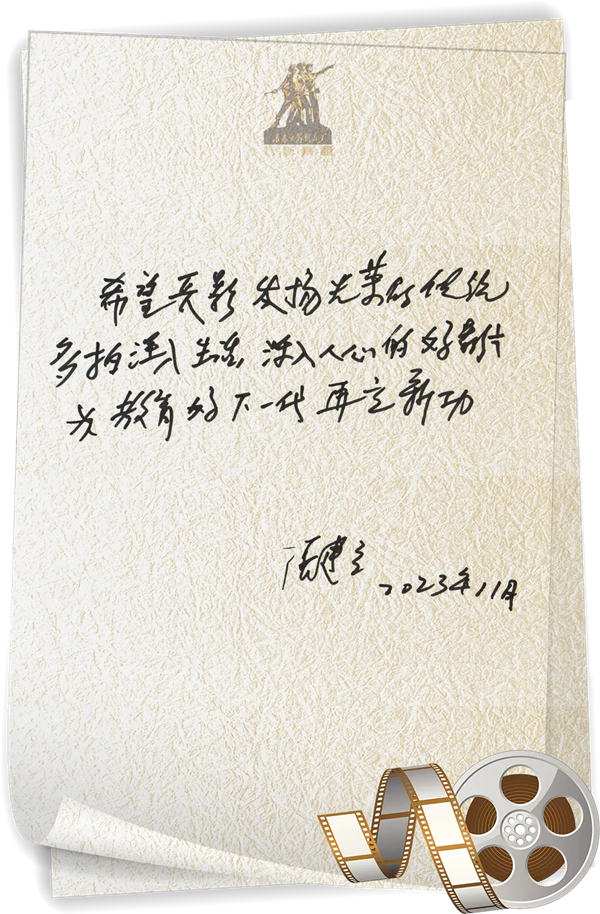 长春电影制片厂
希望长影发扬光荣的传统
多拍深入生活 深入人心的好影片
为教育好下一代再立新功
2023年11月